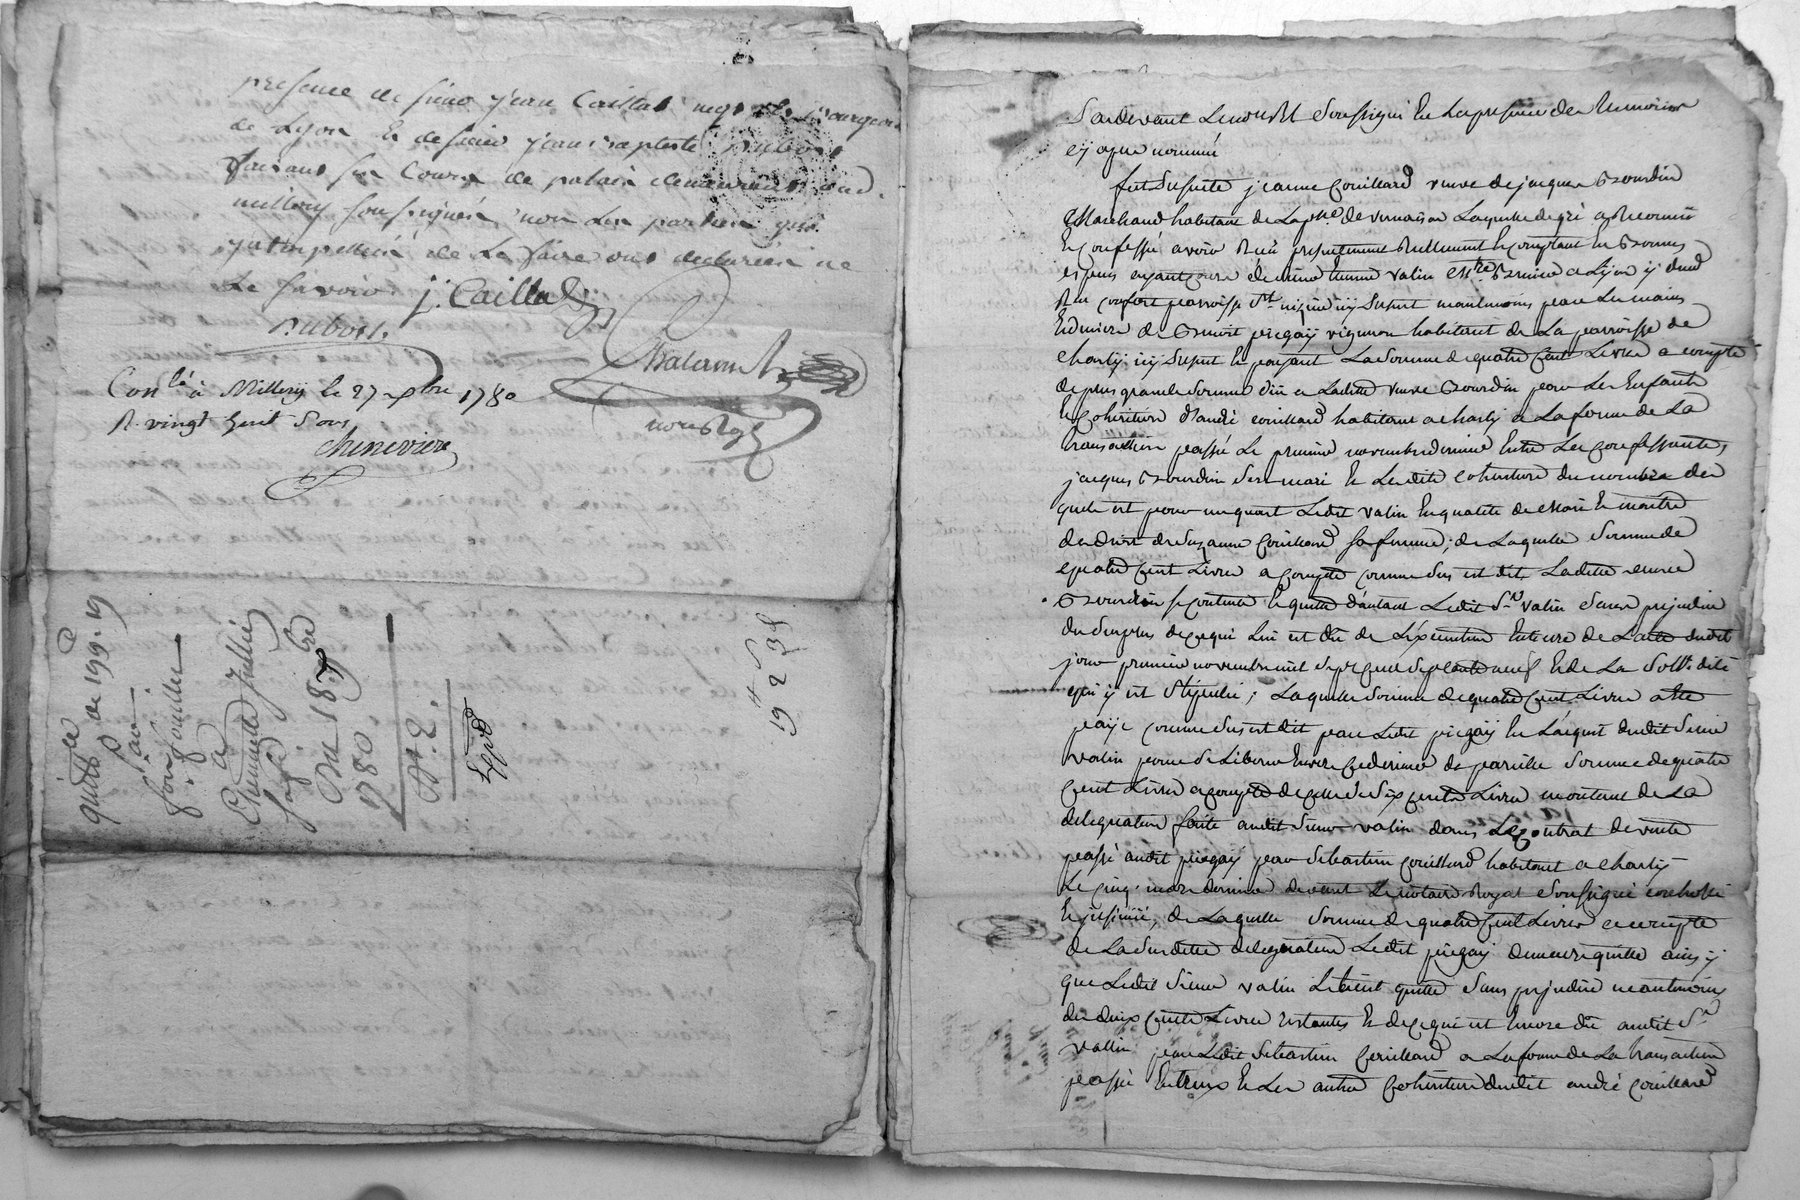 presence de sieur jean Caillat neg.t bourgeois
de Lyon et de sieur jean baptiste Dubost
faisant son Cours de palais demeurant aud.
millery soussignés non les parties qui
interpellées de le faire ont déclarées ne
Le savoir J. Caillat
Dubost.
Chalerm
Con.lé à Millery le 27 xbre 1780
R. vingt huit Sous
Cheneviere
quitt.ce de 199. 19
Pair
fonfouillen
a
Ennemond Jullien
Du 18 xbre
1780
N. 2.
Expd
19 2 3
Pardevant Lenore Rl soussigné En La presence des temoins
cy apres nommés
fut presente jeanne Couillard veuve de jacques Bourdin
Marchand habitant de La p.sse de vernaison Laquelle de gré a Reconnu
Et Confessé avoir Reçu presentement Reellement Et Comptant En Bonnes
especes ayant cours de sieur valin M.tre a Lyon y dem.t
Rue confort parroisse S.t nizier icy present neanmoins par Les mains
Et deniers de Benoit piegay vigneron habitant de La parroisse de
Charly icy present Et payant La somme de quatre Cent Livres a compte
de plus grande somme düe a Ladite veuve Bourdin par Les Enfants
Et Coheritiers d'andré Couillard habitant a Charly a La forme de La
transaction passée Le premier novembre dernier Entre La Confessante,
jacques Bourdin son mari Et Lesdits coheritiers du nombre des
quels est pour un quart Ledit valin En qualité de Mari Et maitre
des droits de Suzanne Couillard sa femme; de Laquelle somme de
quatre Cent Livres a Compte Comme dus est dit, Ladite veuve
Bourdin se contente Et quitte d'autant Ledit S.r valin sans prejudice
du surplus de ce qui Lui est dû de L'execution Entiere de L'acte dudit
jour premier novembre mil sept cent soixante dix neuf Et de La Soll.dité
qui y est stipulée; Laquelle somme de quatre Cent Livres a Eté
payée comme dus est dit par Ledit piegay En L'acquit dudit sieur
valin pour se Liberer Envers Ce dernier de pareille somme de quatre
Cent Livres a compte de celle de six Cents Livres montant de La
delegation faite audit sieur valin dans Le Contrat de vente
passé audit piegay par Sebastien Couillard habitant a Charly
Le cinq mars dernier devant Le notaire Royal soussigné controllé
Et insinué, de Laquelle somme de quatre Cent Livres a compte
de La susdite delegation Ledit piegay demeure quitte ainsy
que Ledit sieur valin Le tient quitte sans prejudice neantmoins
des deux Cents Livres restantes Et de ce qui est Encore dû audit S.r
vallin par Ledit Sebastien Couillard a La forme de La transaction
passée Entr'eux Et Les autres Coheritiers dudit andré Couillard